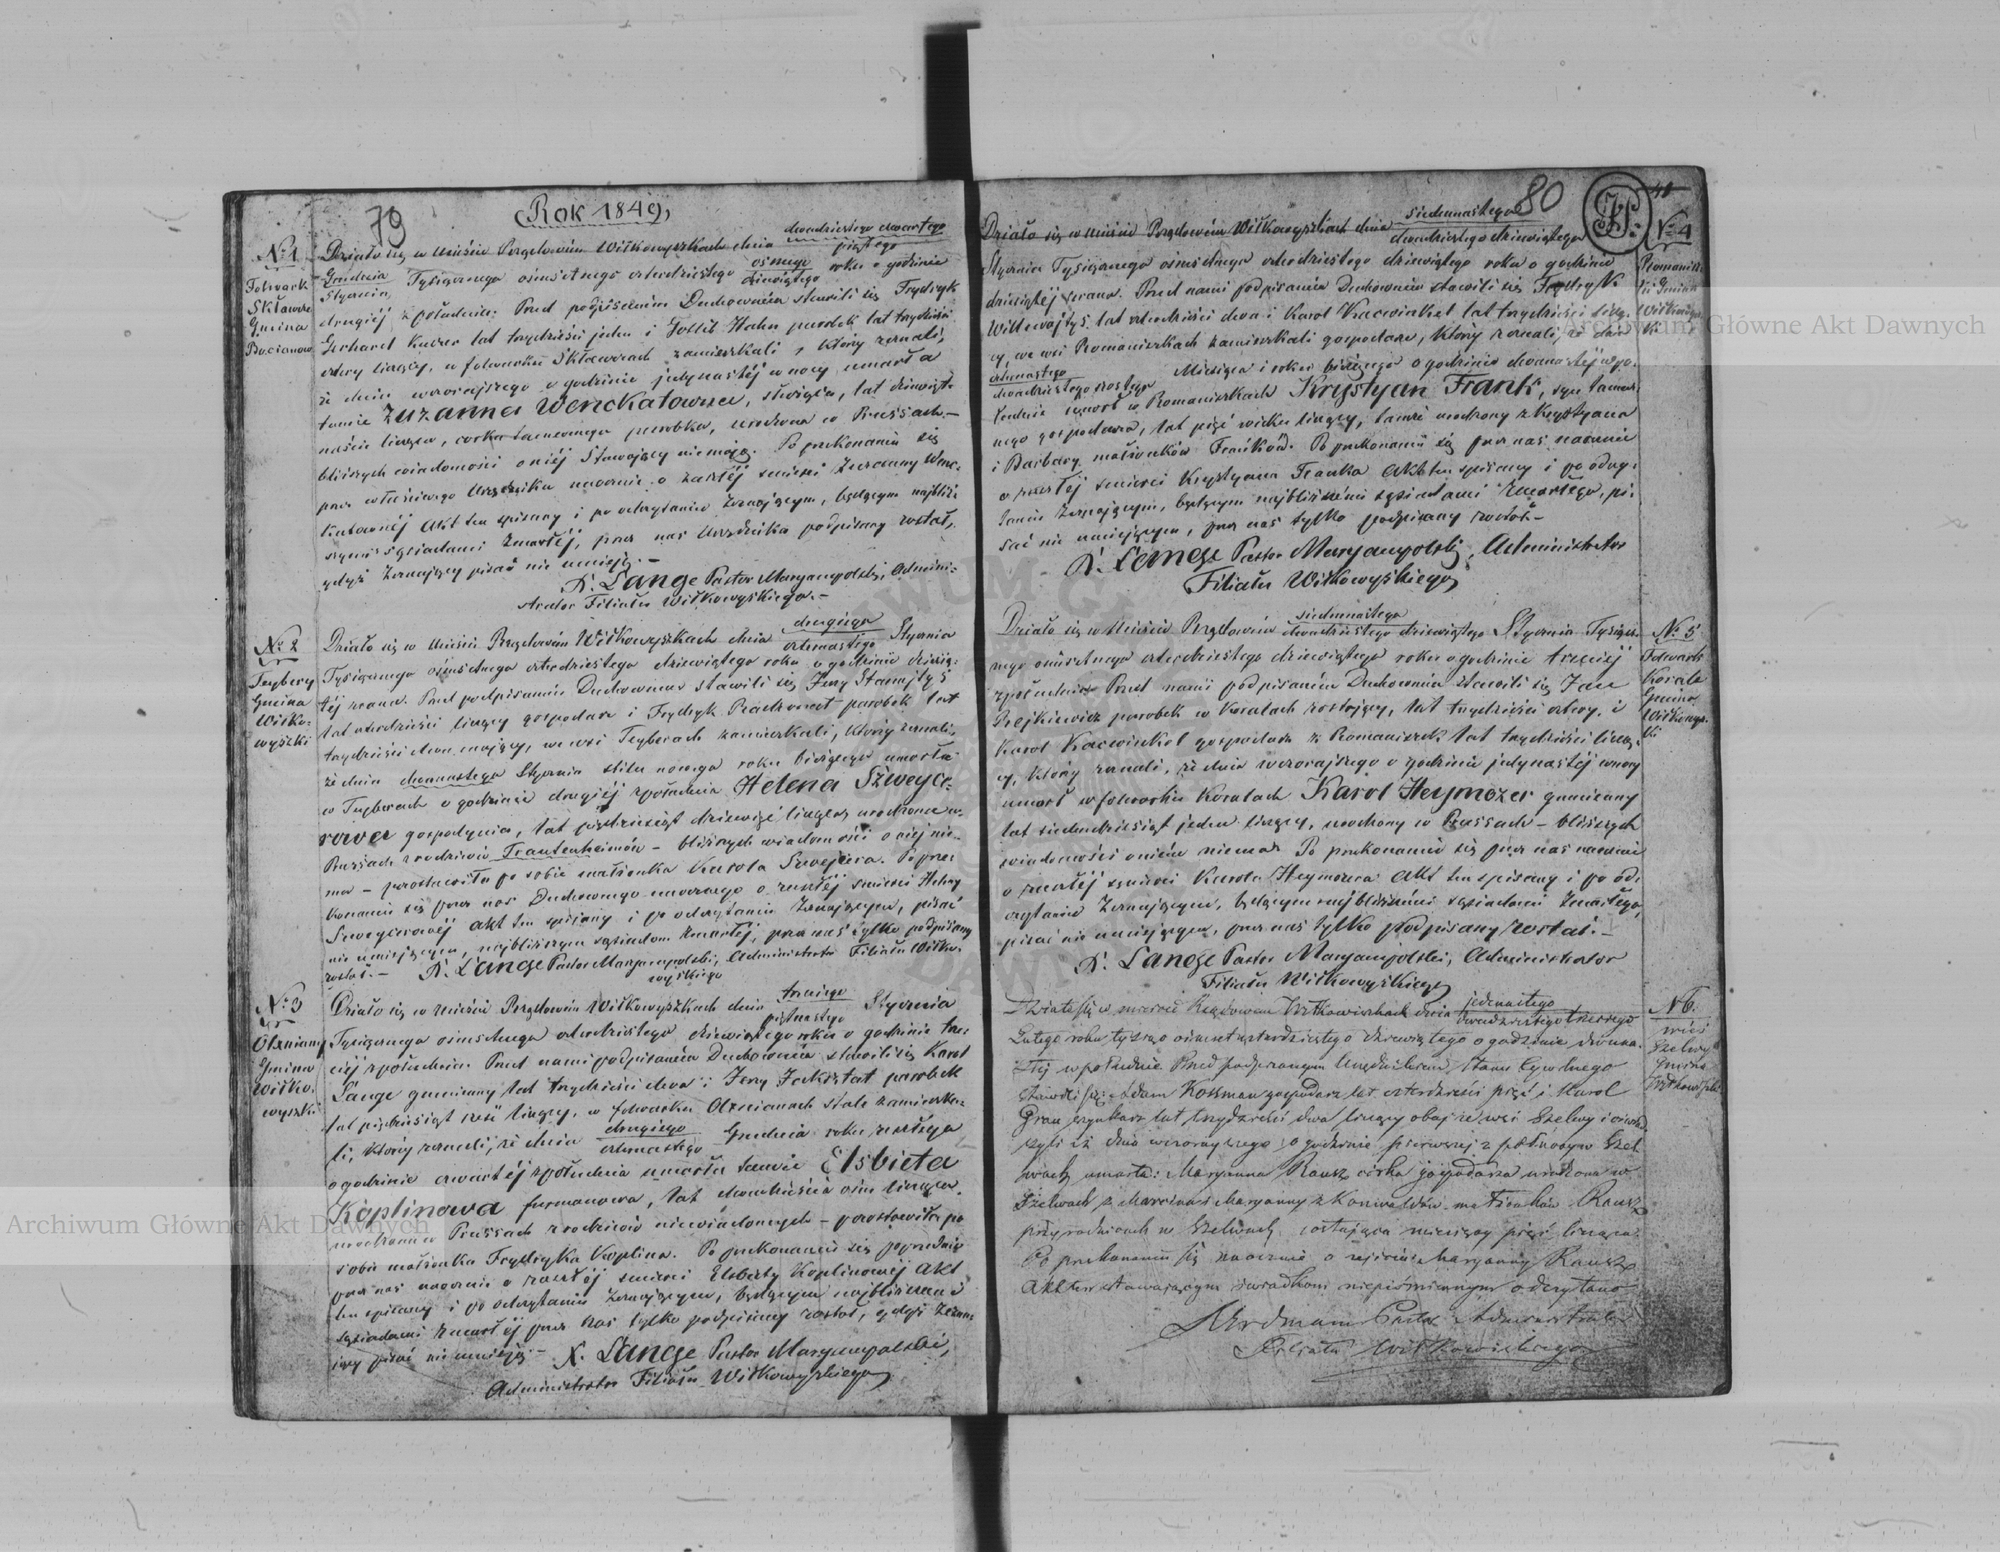 79
Rok 1849,
№ 1
Folwark
Gmina
dwudziestego czwartego
Działo się w Mieście Rządowém Wiłkowyszkach dnia piątego
Grudnia ósmego
Stycznia, Tysiącznego ośmsetnego czterdziestego dziewiątego roku o godzinie
drugiéj z południa. Przed podpisanym Duchownym stawili się Frydryk
Gerhard lat trzydzieści jeden i Gotlib Hahn parobek lat trzydzieści
cztery liczący, w folwarku zamieszkali, Który zeznali,
że dnia wczorajszego o godzinie jedynastéj w nocy umarła
tamże Zuzanna Wenckatowna, służąca, lat dziewięt-
naście licząca, córka tamecznego parobka, urodzona w Prussach –
bliższych wiadomości o niéj Stawający niemają. Po przekonaniu się
przez właściwego Urzędnika naocznie o zaszłéj śmierci Zuzanny Wenc-
katownéj Akt ten spisany i po odczytaniu Zeznającym, będącym najbliż-
szymi sąsiadami Zmarłéj, przez nas Urzędnika podpisany został,
gdyż Zeznający pisać nie umieją. –
X. Lange Pastor Maryampolski, Admini-
strator Filiału Wiłkowyskiego. –
№ 2
Gmina
Wiłko-
wyszki
drugiego
Działo się w Mieście Rządowém Wiłkowyszkach dnia czternastego Stycznia
Tysiącznego ośmsetnego czterdziestego dziewiątego roku o godzinie dziesią-
téj zrana. Przed podpisanym Duchownym stawili się Jerzy
lat czterdzieści liczący gospodarz i Frydryk parobek lat
trzydzieści dwa mający, we wsi zamieszkali, Którzy zeznali,
że dnia dwunastego Stycznia stilu nowego roku bieżącego umarła
w o godzinie drugiéj z południa Helena Szweyce-
rowa gospodynia, lat pięćdziesiąt dziewięć licząca, urodzona w
Prussach z rodziców Trautenheimów – bliższych wiadomości o niéj nie-
ma – pozostawiła po sobie małżonka Karola Szwejcera. Po prze-
konaniu się przez nas Duchownego naocznego o zaszłéj śmierci Heleny
Szweycerowéj Akt ten spisany i po odczytaniu Zeznającym, pisać
nie umiejącym, najbliższym sąsiadom Zmarłéj, przez nas tylko podpisany
został. – X. Lange Pastor Maryampolski, Administrator Filiału Wiłko-
wyskiego
№ 3
Gmina
Wiłko-
wyszki
trzeciego
Działo się w Mieście Rządowém Wiłkowyszkach dnia piętnastego Stycznia
Tysiącznego ośmsetnego czterdziestego dziewiątego roku o godzinie trze-
ciéj z południa. Przed nami podpisanym Duchownym stawili się Karol
Lange gumienny lat trzydzieści dwa i Jerzy parobek
lat pięćdziesiąt sześć liczący, w folwarku stale zamieszka-
li, Który zeznali, że dnia drugiego czternastego Grudnia roku zeszłego
o godzinie czwartéj z południa umarła tamże Elsbieta
Koplinowa furmanowa, lat dwadzieścia ośm licząca,
urodzona w Prussach z rodziców niewiadomych – pozostawiła po
sobie małżonka Frydryka Koplina. Po przekonaniu się poprzednio
przez nas naocznie o zaszłéj śmierci Elsbiety Koplinowéj Akt
ten spisany i po odczytaniu Zeznającym, będącym najbliższemi
sąsiadami Zmarłéj przez nas tylko podpisany został, gdyż Zezna-
jący pisać nie umieją – X. Lange Pastor Maryampolski,
Administrator Filiału Wiłkowyskiego
80
№ 4
Gmina
siedmnastego
Działo się w Mieście Rządowém Wiłkowyszkach dnia dwudziestego dziewiątego
Stycznia Tysiącznego ośmsetnego czterdziestego dziewiątego roku o godzinie
dziesiątéj zrana. Przed nami podpisanym Duchownym stawili się Frydryk
lat czterdzieści dwa i Karol Kacewinkel lat trzydzieści liczą-
cy, we wsi Romaniszkach zamieszkali gospodarze, Który zeznali, że dnia
czternastego
dwudziestego szóstego Miesiąca i roku bieżącego o godzinie dwunastéj w po-
łudnie umarł w Romaniszkach Krystyan Frank, syn tamecz-
nego gospodarza, lat pięć wieku liczący, tamże urodzony z Krystyana
i Barbary małżonków Franków. Po przekonaniu się przez nas naocznie
o zaszłéj śmierci Krystyana Franka Akt ten spisany i po odczy-
taniu Zeznającym, będącym najbliższémi sąsiadami Zmarłego, pi-
sać nie umiejącym, przez nas tylko podpisany został. –
X. Lange Pastor Maryampolski, Administrator
Filiału Wiłkowyskiego
№ 5
Folwark
Gmina
siedmnastego
Działo się w Mieście Rządowém dwudziestego dziewiątego Stycznia Tysiącz-
nego ośmsetnego czterdziestego dziewiątego roku o godzinie trzeciéj
z południa Przed nami podpisanym Duchownym stawili się Jan
parobek w Koralach zostający, lat trzydzieści cztery, i
Karol Kacewinkel gospodarz z Romaniszek lat trzydzieści liczą-
cy, Który zeznali, że dnia wczorajszego o godzinie jedynastéj w nocy
umarł w folwarku Koralach Karol Heymozer gumienny
lat siedmdziesiąt jeden liczący, urodzony w Prussach – bliższych
wiadomości o niém niema. Po przekonaniu się przez nas naocznie
o zaszłéj śmierci Karola Heymozera Akt ten spisany i po od-
czytaniu Zeznającym, będącym najbliższémi sąsiadami Zmarłego,
pisać nie umiejącym, przez nas tylko podpisany został. –
X. Lange Pastor Maryampolski, Administrator
Filiału Wiłkowyskiego
№ 6.
wieś
Szelwy
Gmina
jedenastego
Działo się w mieście Rządowem Wiłkowiszkach dnia dwudziestego trzeciego
Lutego roku tysiąc ośmset czterdziestego dziewiątego o godzinie dwuna-
stej w południe Przed podpisanym Urzędnikiem Stanu Cywilnego
stawili się: Adam Kossman gospodarz lat czterdzieści pięć i Karol
Grau lat trzydzieści dwa liczący obaj ze wsi Szelwy i oświad-
czyli iż dnia wczorayszego o godzinie pierwszej z północy w Szel-
wach umarła: Maryanna Rausz córka gospodarza urodzona w
Szelwach z Marcina i Maryanny z małżonków Rausz
przy rodzicach w Szelwach zostająca miesięcy pięć licząca.
Po przekonaniu się naocznie o zejściu Maryanny Rausz
Akt ten stawającym świadkom niepiśmiennym odczytano
Pastor Administrator
Filiału Wiłkowiskiego
Archiwum Główne Akt Dawnych
Archiwum Główne Akt Dawnych